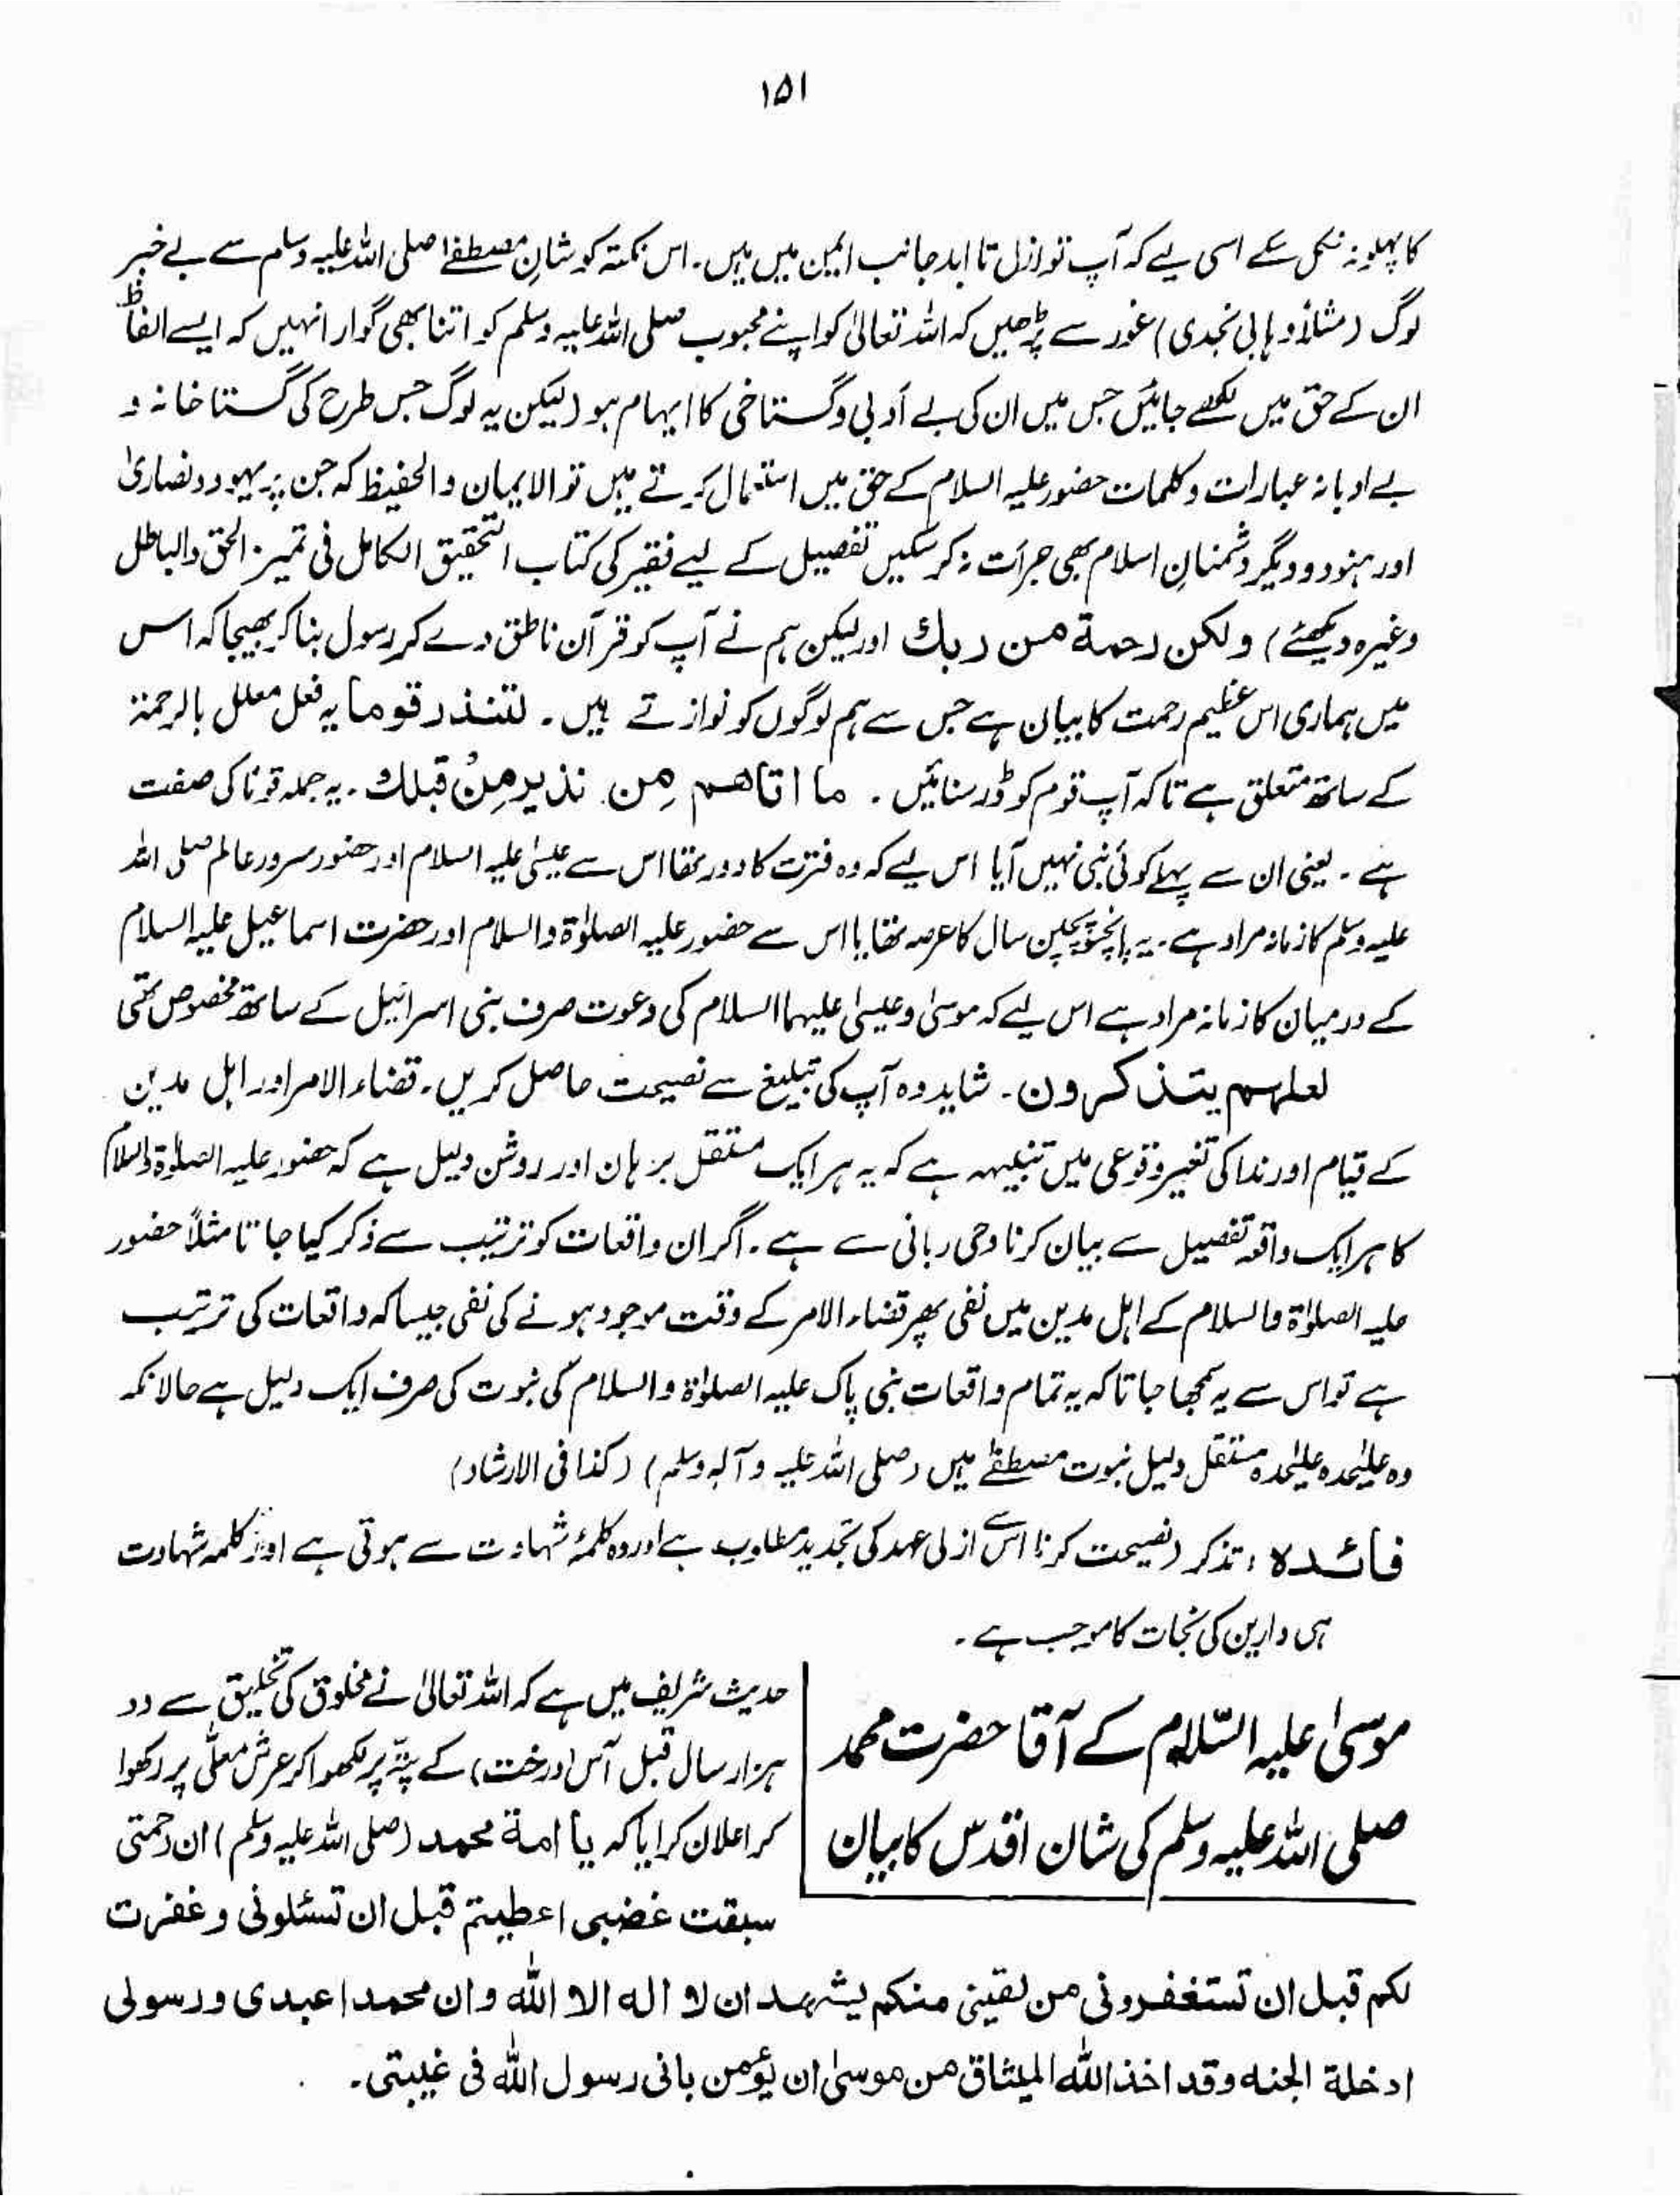 ۱۵۱
کا پہلو نہ نکل سکے اسی لیے کہ آپ تو ازل تا ابد جانب ایمن میں ہیں۔ اس نکتہ کو شانِ مصطفےٰ صلی اللہ علیہ وسلم سے بے خبر
لوگ (مثلاً وہابی نجدی) غور سے پڑھیں کہ اللہ تعالیٰ کو اپنے محبوب صلی اللہ علیہ وسلم کو اتنا بھی گوارا نہیں کہ ایسے الفاظ
ان کے حق میں لکھے جائیں جس میں ان کی بے ادبی و گستاخی کا ایہام ہو (لیکن یہ لوگ جس طرح کی گستاخانہ و
بے ادبانہ عبارات و کلمات حضور علیہ السلام کے حق میں استعمال کرتے ہیں تو الایمان والحفیظ کہ جن پر یہود و نصاریٰ
اور ہنود و دیگر دشمنانِ اسلام بھی جرأت نہ کر سکیں تفصیل کے لیے فقیر کی کتاب التحقیق الکامل فی تمیز الحق والباطل
وغیرہ دیکھئے) ولکن رحمة من ربك اور لیکن ہم نے آپ کو قرآن ناطق دے کر رسول بنا کر بھیجا کہ اس
میں ہماری اس عظیم رحمت کا بیان ہے جس سے ہم لوگوں کو نوازتے ہیں۔ لتنذر قوما یہ فعل معلل بالرحمۃ
کے ساتھ متعلق ہے تاکہ آپ قوم کو ڈر سنائیں۔ ما اتاهم مِن نذیر مِنْ قبلك۔ یہ جملہ قومًا کی صفت
ہے۔ یعنی ان سے پہلے کوئی نبی نہیں آیا اس لیے کہ وہ فترت کا دور تھا اس سے عیسیٰ علیہ السلام اور حضور سرور عالم صلی اللہ
علیہ وسلم کا زمانہ مراد ہے۔ یہ پانچسو پچپن سال کا عرصہ تھا یا اس سے حضور علیہ الصلوٰۃ والسلام اور حضرت اسماعیل علیہ السلام
کے درمیان کا زمانہ مراد ہے اس لیے کہ موسیٰ و عیسیٰ علیہما السلام کی دعوت صرف بنی اسرائیل کے ساتھ مخصوص تھی
لعلہم یتذکرون۔ شاید وہ آپ کی تبلیغ سے نصیحت حاصل کریں۔ قضاء الامر اور اہل مدین
کے قیام اور ندا کی تغیر وقوعی میں تنبیہہ ہے کہ یہ ہر ایک مستقل برہان اور روشن دلیل ہے کہ حضور علیہ الصلوٰۃ والسلام
کا ہر ایک واقعہ تفصیل سے بیان کرنا وحی ربانی سے ہے۔ اگر ان واقعات کو ترتیب سے ذکر کیا جاتا مثلاً حضور
علیہ الصلوٰۃ والسلام کے اہل مدین میں نفی پھر قضاء الامر کے وقت موجود ہونے کی نفی جیسا کہ واقعات کی ترتیب
ہے تو اس سے یہ سمجھا جاتا کہ یہ تمام واقعات نبی پاک علیہ الصلوٰۃ والسلام کی نبوت کی صرف ایک دلیل ہے حالانکہ
وہ علیٰحدہ علیٰحدہ مستقل دلیل نبوت مصطفےٰ ہیں (صلی اللہ علیہ و آلہ وسلم) (کذا فی الارشاد)
فائدہ : تذکر (نصیحت کرنا اس سے ازلی عہد کی تجدید مطلوب ہے اور وہ کلمۂ شہادت سے ہوتی ہے اور کلمہ شہادت
ہی دارین کی نجات کا موجب ہے۔
موسیٰ علیہ السّلام کے آقا حضرت محمد
صلی اللہ علیہ وسلم کی شان اقدس کا بیان
حدیث شریف میں ہے کہ اللہ تعالیٰ نے مخلوق کی تخلیق سے دو
ہزار سال قبل آس (درخت) کے پتّہ پر لکھوا کر عرش معلّٰی پر رکھوا
کر اعلان کرایا کہ یا امة محمد (صلی اللہ علیہ وسلم) ان رحمتی
سبقت غضبی اعطیتم قبل ان تسئلونی و غفرت
لکم قبل ان تستغفرونی من لقینی منکم یشہد ان لا الہ الا اللہ وان محمدا عبدی و رسولی
ادخلة الجنه وقد اخذ اللہ المیثاق من موسیٰ ان یؤمن بانی رسول اللہ فی غیبتی۔